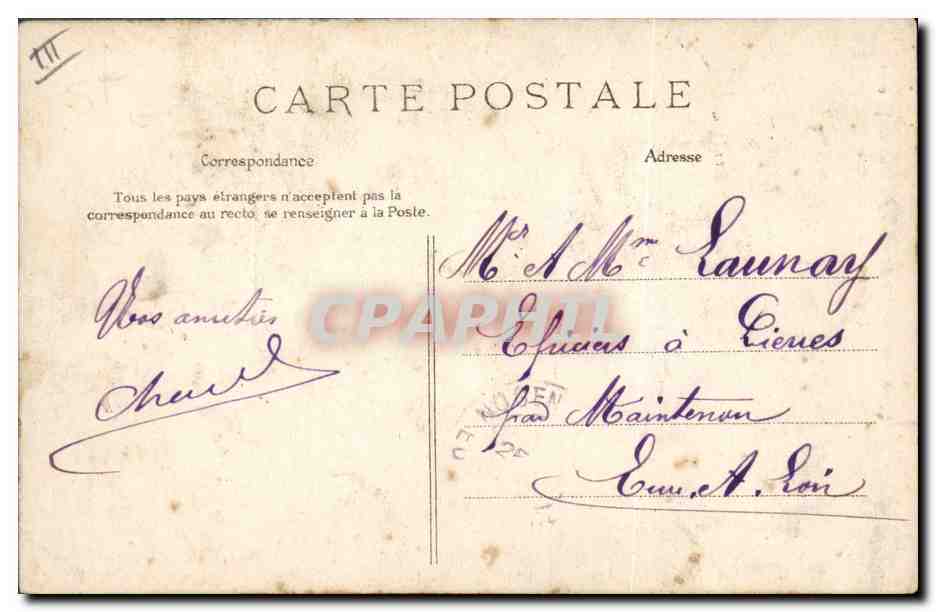 III
CARTE POSTALE
Correspondance
Adresse
Tous les pays étrangers n'acceptent pas la
correspondance au recto, se renseigner à la Poste.
Mr. A Mme Launay
Epiciers à Pierres
par Maintenon
Eure. A. Loir
Vos amitiés
CPAPHIL
NOGENT